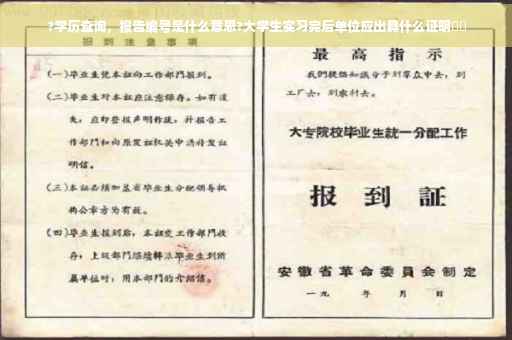 ?学历查询，报告编号是什么意思?大学生实习完后单位应出具什么证明
报到注意事项
(一)毕业生凭本证向工作部门报到。
(二)毕业生对本证应注意保存。如有遗
失，应即登报声明作废，并报告工
作部门和向原发证机关申请补发证
明信。
(三)本证必须加盖省毕业生分配领导机
构公章方为有效。
(四)毕业生报到后，本证交工作部门收
存；上级部门继续转派毕业生到所
属单位时，用本部门的介绍信。
最高指示
我们提倡知识分子到群众中去，到
工厂去，到农村去。
大专院校毕业生统一分配工作
报到証
安徽省革命委員会制定
一九 年 月 日